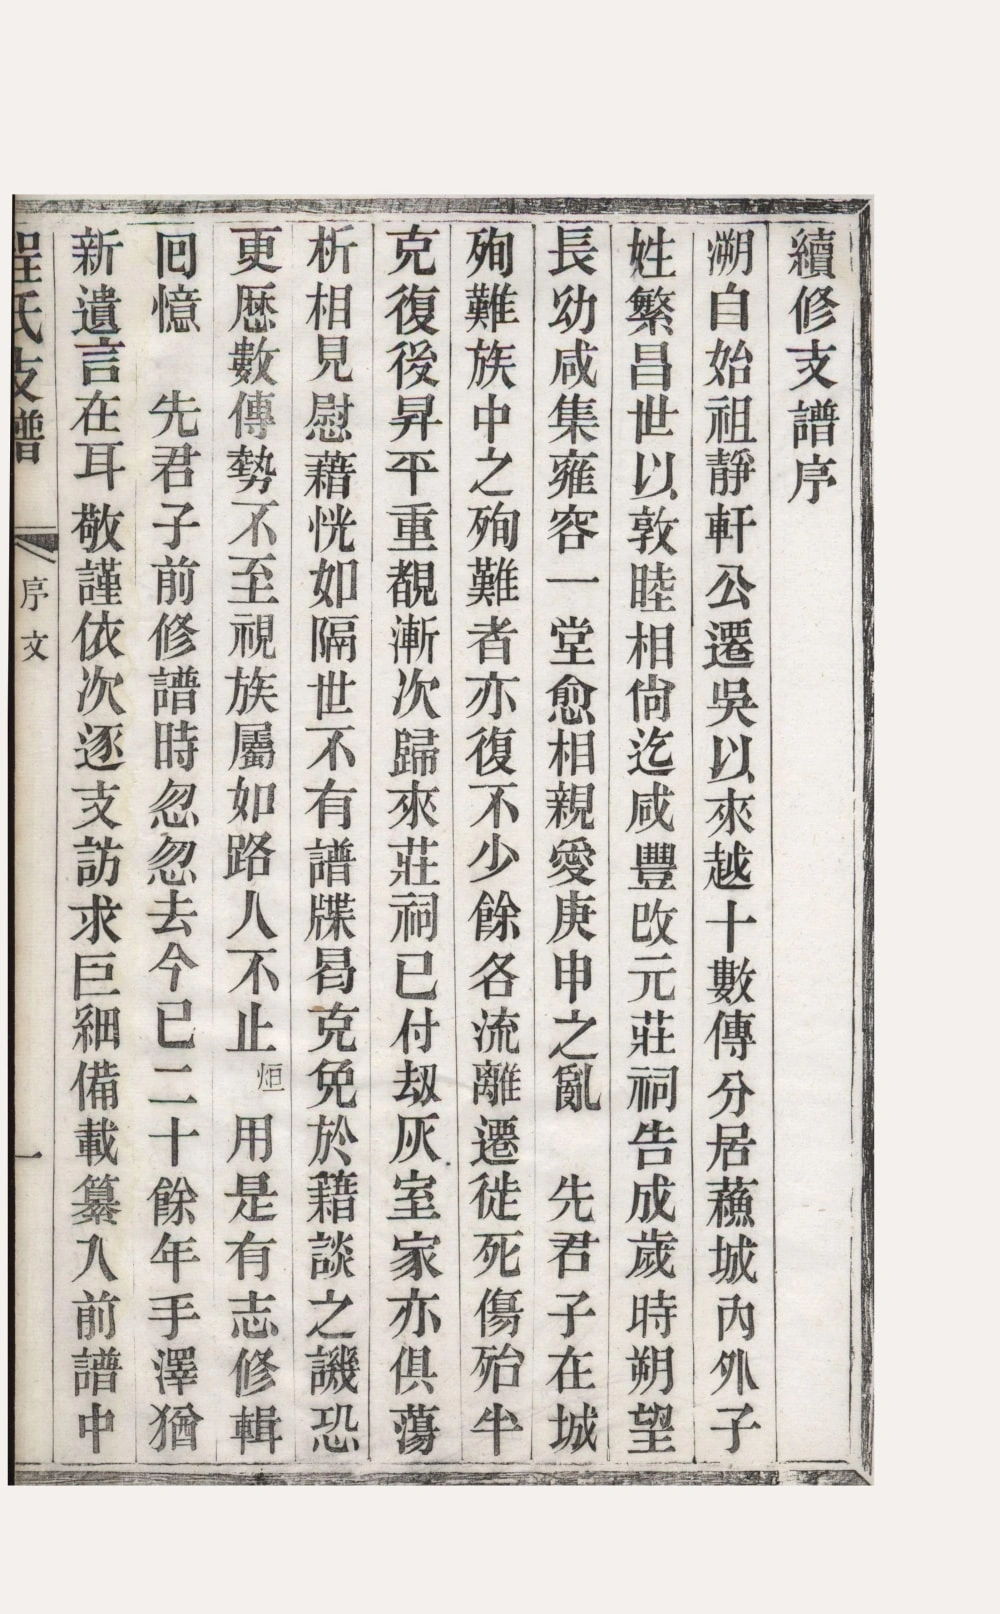 續修支譜序
溯自始祖靜軒公遷吳以來越十數傳分居蘓城內外子
姓繁昌世以敦睦相尙迄咸豐改元莊祠告成歲時朔望
長幼咸集雍容一堂愈相親愛庚申之亂　先君子在城
殉難族中之殉難者亦復不少餘各流離遷徙死傷殆半
克復後昇平重覩漸次歸來莊祠已付劫灰室家亦俱蕩
析相見慰藉恍如隔世不有譜牒曷克免於籍談之譏恐
更歷數傳勢不至視族屬如路人不止炬　用是有志修輯
回憶　先君子前修譜時忽忽去今已二十餘年手澤猶
新遺言在耳敬謹依次逐支訪求巨細備載纂入前譜中
程氏支譜　序文　一